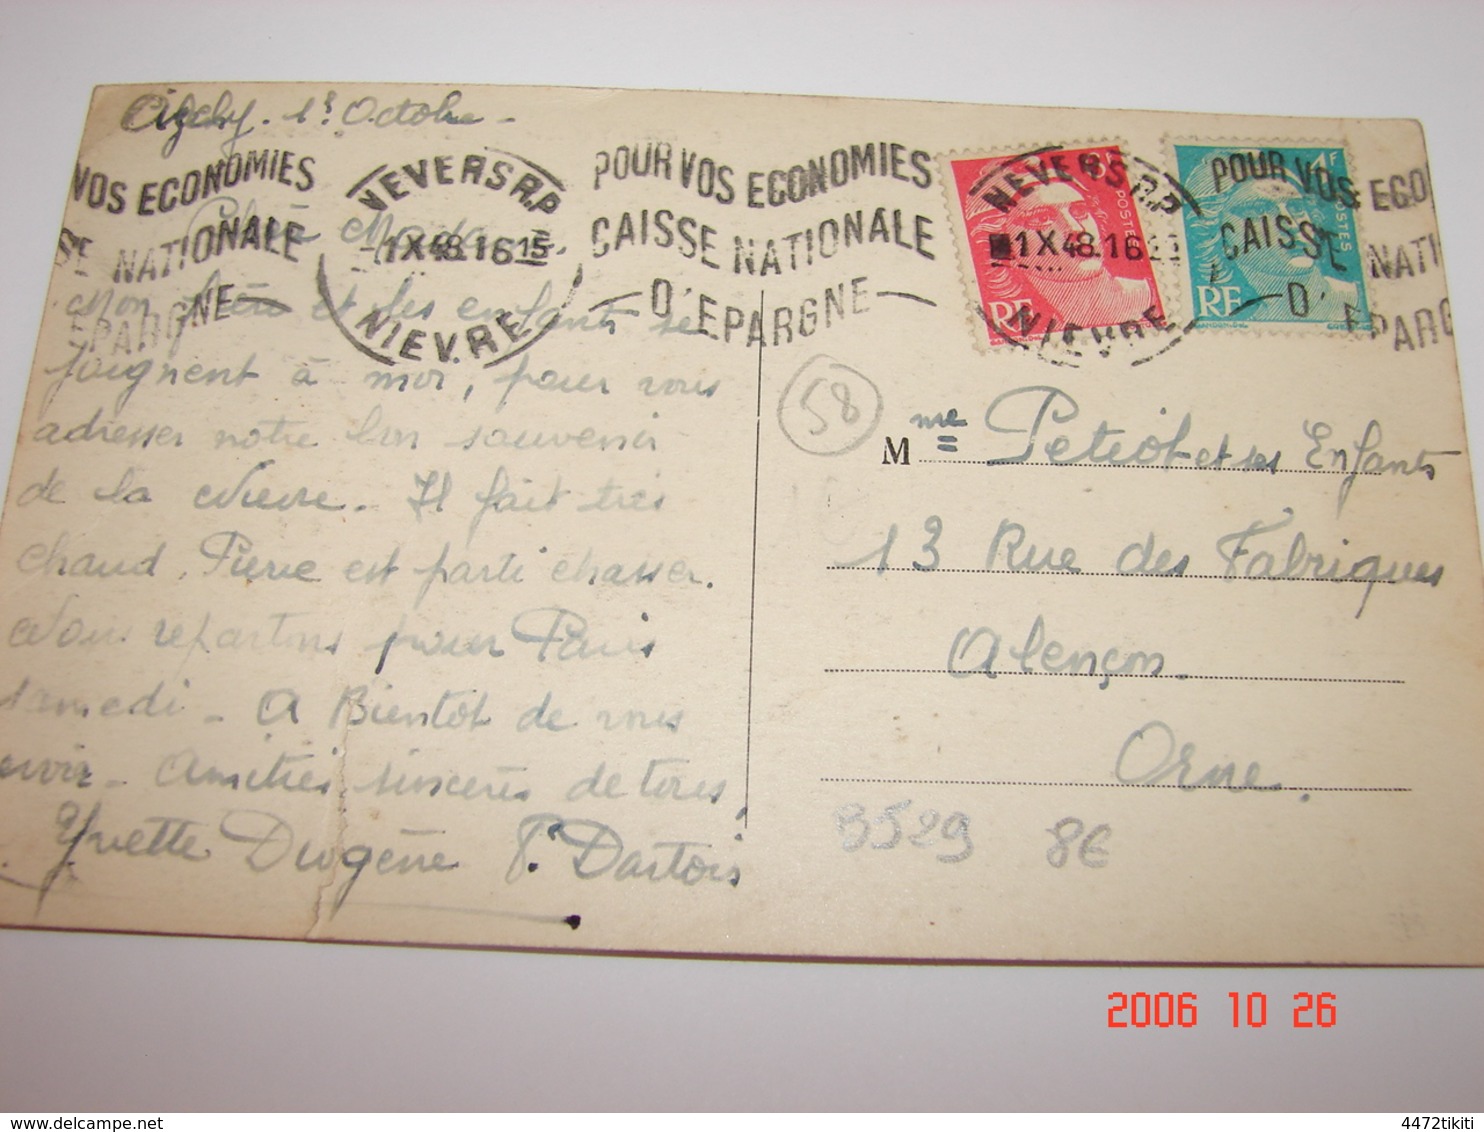 1er Octobre -
VOS ECONOMIES
NATIONALE
EPARGNE
NEVERS R.P
1 X 48. 16 15
NIEVRE
POUR VOS ECONOMIES
CAISSE NATIONALE
D'EPARGNE
NEVERS R.P
1 X 48. 16
NIEVRE
POSTES
RF
POUR VOS ECO
CAISSE NATI
D' EPARG
4F
POSTES
RF
Chère Madame
Mon frère et les enfants se
joignent à moi, pour vous
adresser notre bon souvenir
de la Nièvre. Il fait très
chaud, Pierre est parti chasser.
Nous repartons pour Paris
samedi - A Bientôt de vous
revoir - Amitiés sincères de tous
Yvette Diogène P. Dartois
58
Mme Petiot et ses Enfants
13 Rue des Fabriques
Alençon.
Orne.
B529 8€
2006 10 26
www.delcampe.net
4472tikiti